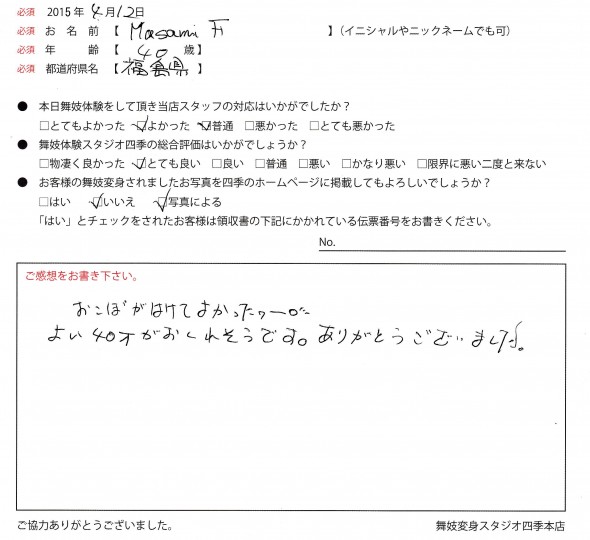 必須 2015年 4月12日
必須 お名前 【 Masami F 】(イニシャルやニックネームでも可)
必須 年齢 【 40 歳】
必須 都道府県名 【福島県】
● 本日舞妓体験をして頂き当店スタッフの対応はいかがでしたか?
□とてもよかった ☑よかった ☑普通 □悪かった □とても悪かった
● 舞妓体験スタジオ四季の総合評価はいかがでしょうか?
□物凄く良かった ☑とても良い □良い □普通 □悪い □かなり悪い □限界に悪い二度と来ない
● お客様の舞妓変身されましたお写真を四季のホームページに掲載してもよろしいでしょうか?
□はい ☑いいえ ☑写真による
「はい」とチェックをされたお客様は領収書の下記にかかれている伝票番号をお書きください。
No.
ご感想をお書き下さい。
おこぼがはけてよかったヮー
よい40才がおくれそうです。ありがとうございました。
ご協力ありがとうございました。
舞妓変身スタジオ四季本店